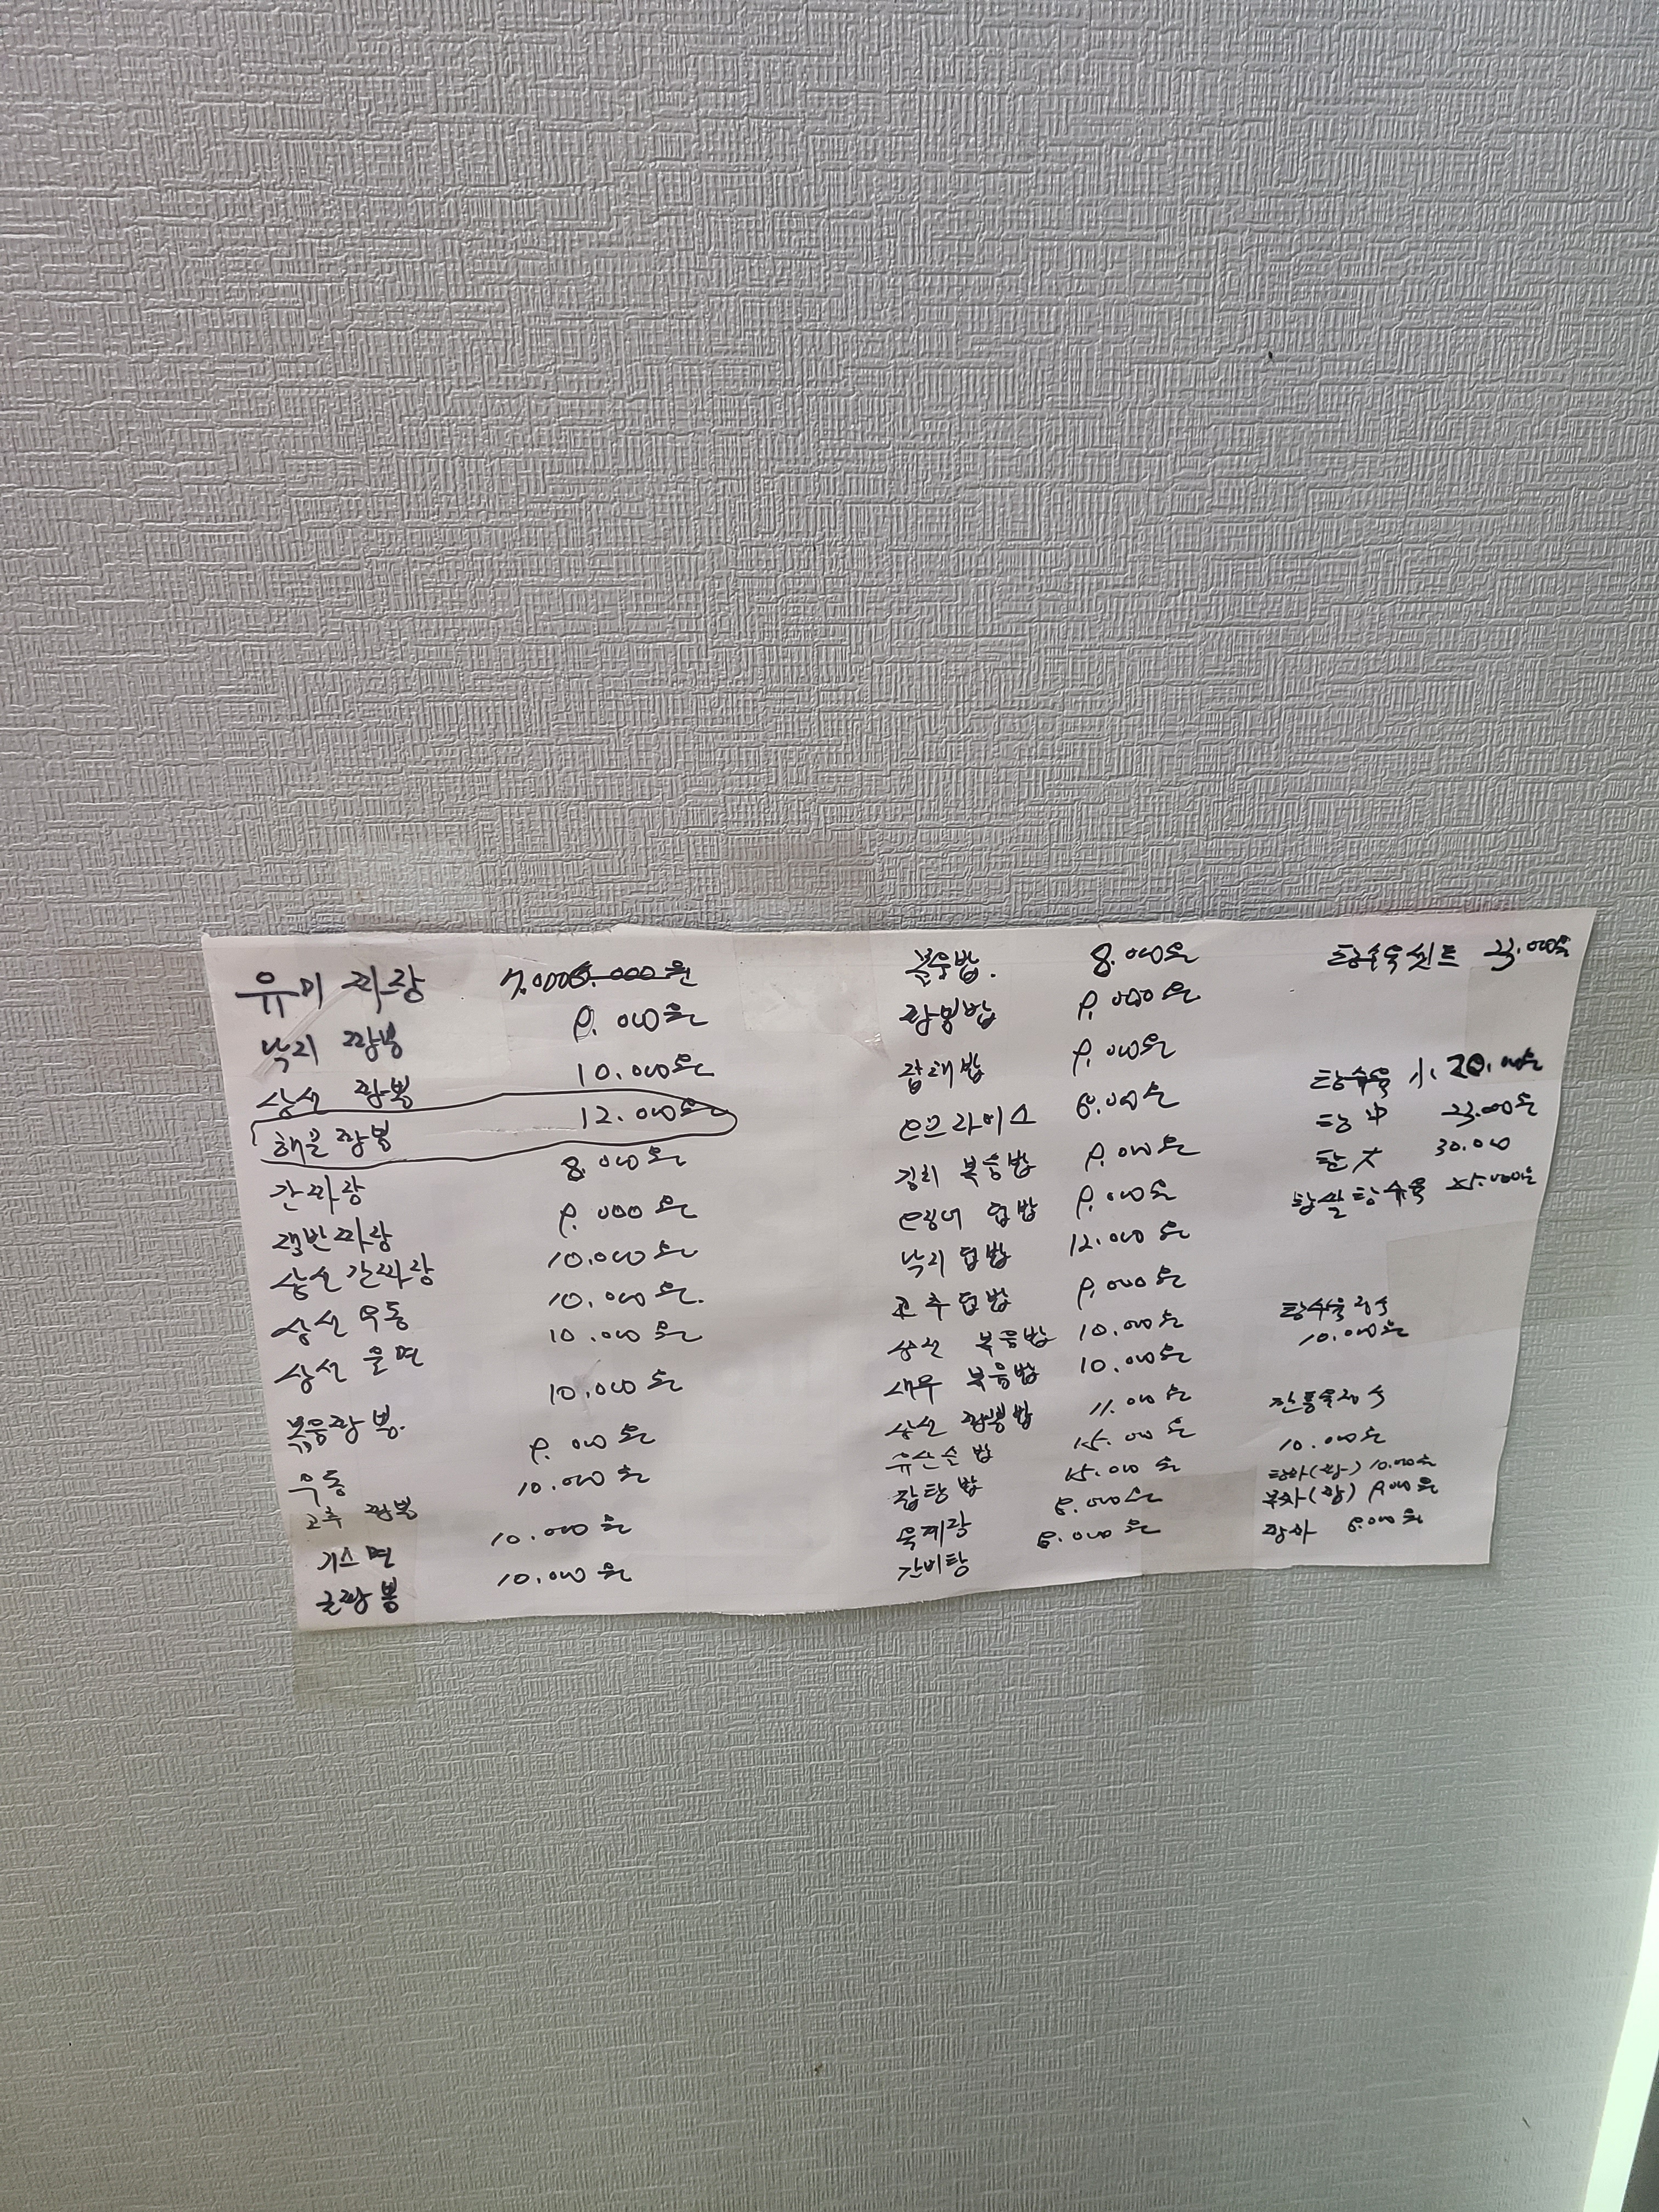 유미 짜장 7.000
낙지 짬뽕 9.000원
삼선 짬뽕 10.000원
해물짬뽕 12.000원
간짜장 8.000원
쟁반짜장 9.000원
삼선간짜장 10.000원
삼선 우동 10.000원.
삼선 울면 10.000원
볶음짬뽕. 10.000원
우동 9.000원
고추 짬뽕 10.000원
기스면 10.000원
굴짬뽕 10.000원
볶음밥. 8.000원
짬뽕밥 9.000원
잡채밥 9.000원
오므라이스
김치 볶음밥 9.000원
오징어 덥밥 9.000원
낙지 덥밥 12.000원
고추덥밥 9.000원
삼선 볶음밥 10.000원
새우 볶음밥 10.000원
삼선 짬뽕밥 11.000원
유산슬밥 15.000원
잡탕밥 15.000원
육계장
갈비탕
탕수육셋트 23.000원
탕수육 小 20.000원
탕 中 23.000원
탕 大 30.000
찹쌀탕수육 25.000원
탕수육정식
10.000원
깐풍육정식
10.000원
탕짜(짬) 10.000원
볶짜(짬) 9.000원